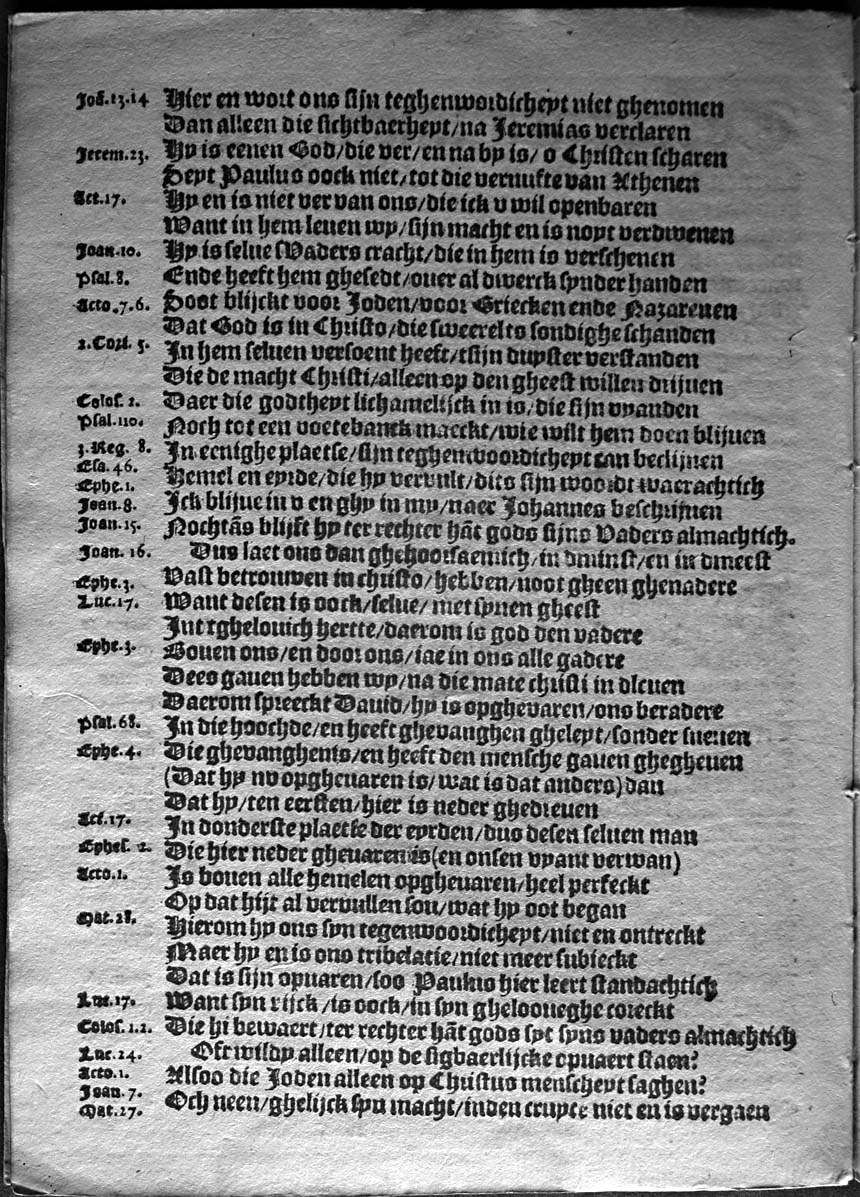 Joã.13.14 Hier en wort ons sijn teghenwordicheyt niet ghenomen
Dan alleen die sichtbaerheyt/na Jeremias verclaren
Jerem.23. Hy is eenen God/die ver/en na by is/o Christen scharen
Seyt Paulus oock niet/tot die vernufte van Athenen
Act.17. Hy en is niet ver van ons/die ick v wil openbaren
Want in hem leuen wy/sijn macht en is noyt verdwenen
Joan.10. Hy is selue sVaders cracht/die in hem is verschenen
Psal.8. Ende heeft hem ghesedt/ouer al dwerck synder handen
Acto.7.6. Soot blijckt voor Joden/voor Griecken ende Nazareuen
Dat God is in Christo/die sweerelts sondighe schanden
2.Cori. 5. In hem seluen versoent heeft/tsijn duyster verstanden
Die de macht Christi/alleen op den gheest willen drijuen
Colos. 2. Daer die godtheyt lichamelijck in is/die sijn vyanden
Psal.110. Noch tot een voetebanck maeckt/wie wilt hem doen blijuen
3.Reg. 8. In eenighe plaetse/sijn teghenwoordicheyt can beclijuen
Esa. 46. Hemel en eyrde/die hy vervult/dits sijn woordt waerachtich
Ephe.1.
Joan.8. Ick blijue in v en ghy in my/naer Johannes beschrijuen
Joan.15. Nochtãs blijft hy ter rechter hãt gods sijns Vaders almachtich.
Joan. 16. Dus laet ons dan ghehoorsaemich/in dminst/en in dmeest
Ephe.3. Vast betrouwen in christo/hebben/noot gheen ghenadere
Luc.17. Want desen is oock/selue/ met synen gheest
Int rghelouich hertte/daerom is god den vadere
Ephe.3. Bouen ons/en door ons/iae in ons alle gadere
Dees gauen hebben wy/na die mate christi in dleuen
Daerom spreeckt Dauid/hy is opghevaren/ons beradere
Psal.68. In die hoochde/en heeft ghevanghen gheleyt/sonder sneuen
Ephe.4. Die ghevanghenis/en heeft den mensche gauen ghegheuen
(Dat hy nv opgheuaren is/wat is dat anders)dan
Dat hy/ten eersten/hier is neder ghedreuen
Act.17. In donderste plaetse der eyrden/dus desen seluen man
Ephes. 2. Die hier neder gheuaren is(en onsen vyant verwan)
Acto.1. Is bouen alle hemelen opgheuaren/heel perfeckt
Op dat hijt al vervullen sou/wat hy oot began
Mat.28. Hierom hy ons syn tegenwoordicheyt/niet en ontreckt
Maer hy en is ons tribelatie/niet meer subieckt
Dat is sijn opuaren/soo Paulus hier leert standachtich
Luc.17. Want syn rijck/is oock/in syn ghelooueghe coreckt
Colos.1.2. Die hi bewaert/ter rechter hãt gods syt syns vaders almachtich
Luc.24. Oft wildy alleen/op de sigbaerlijcke opuaert staen?
Acto.1. Alsoo die Joden alleen op Christus menscheyt saghen?
Joan.7. Och neen/ghelijck syn macht/inden cruyce niet en is vergaen
Mat.27.